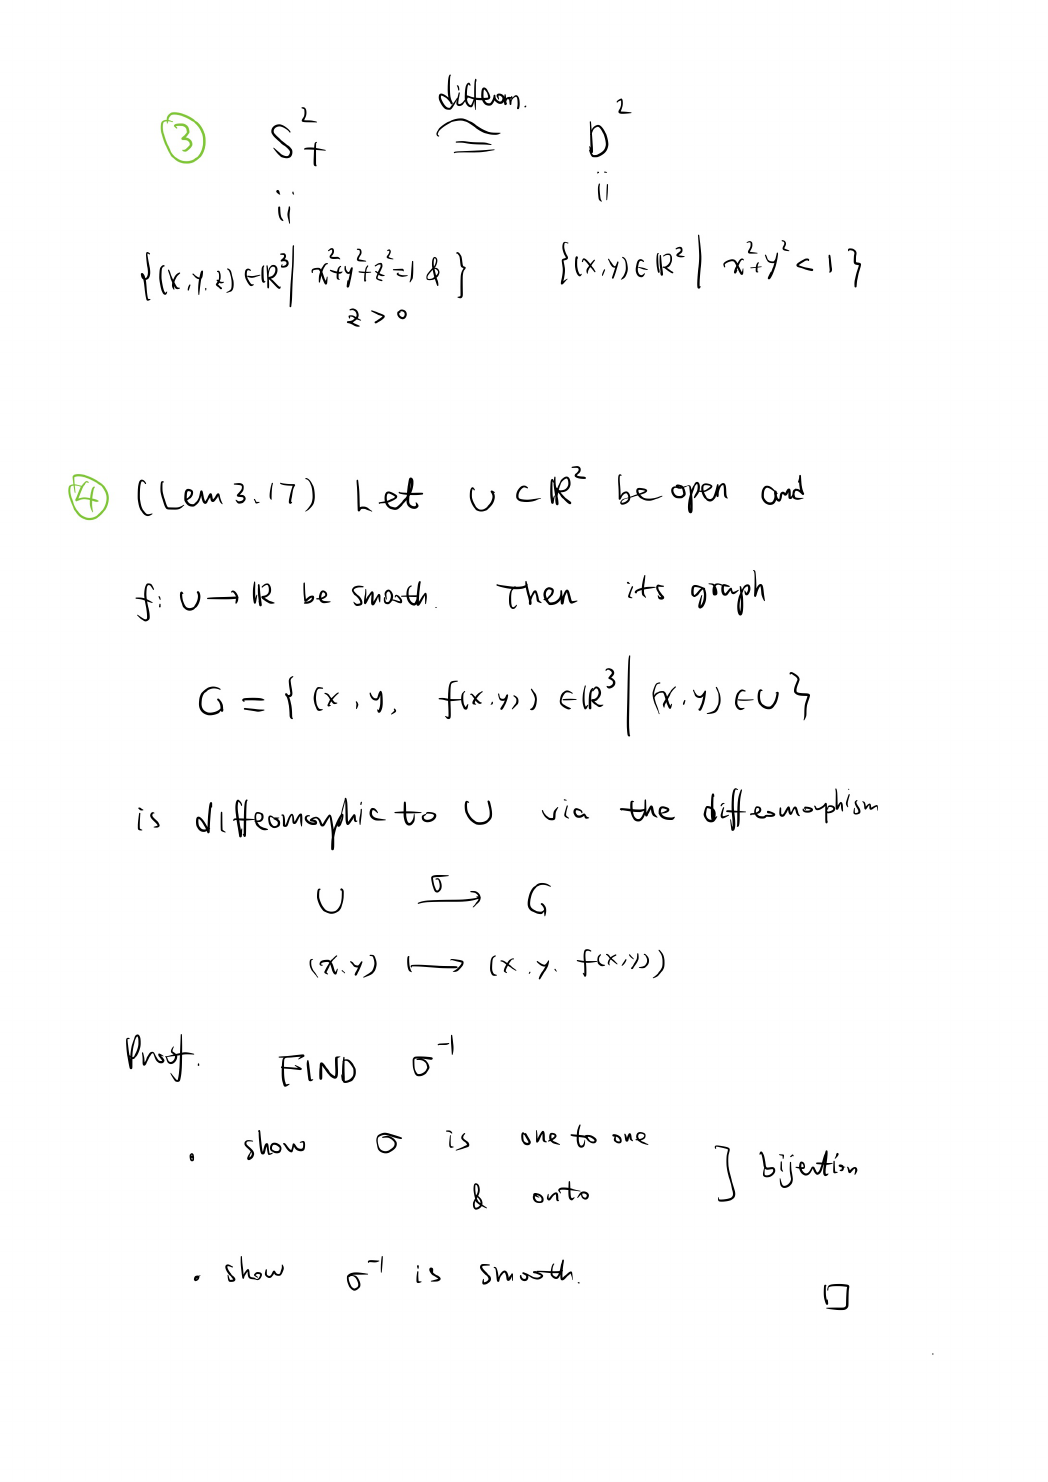 ③ S²₊ diffeom. ≅ D²
{(x,y,z) ∈ ℝ³ | x²+y²+z²=1 & z > 0} {(x,y) ∈ ℝ² | x²+y² < 1}
④ (Lem 3.17) Let U ⊂ ℝ² be open and
f: U → ℝ be smooth. Then its graph
G = { (x, y, f(x,y)) ∈ ℝ³ | (x,y) ∈ U }
is diffeomorphic to U via the diffeomorphism
U —σ→ G
(x,y) ⟼ (x, y, f(x,y))
Proof. FIND σ⁻¹
· show σ is one to one
& onto ] bijection
· show σ⁻¹ is smooth.
□